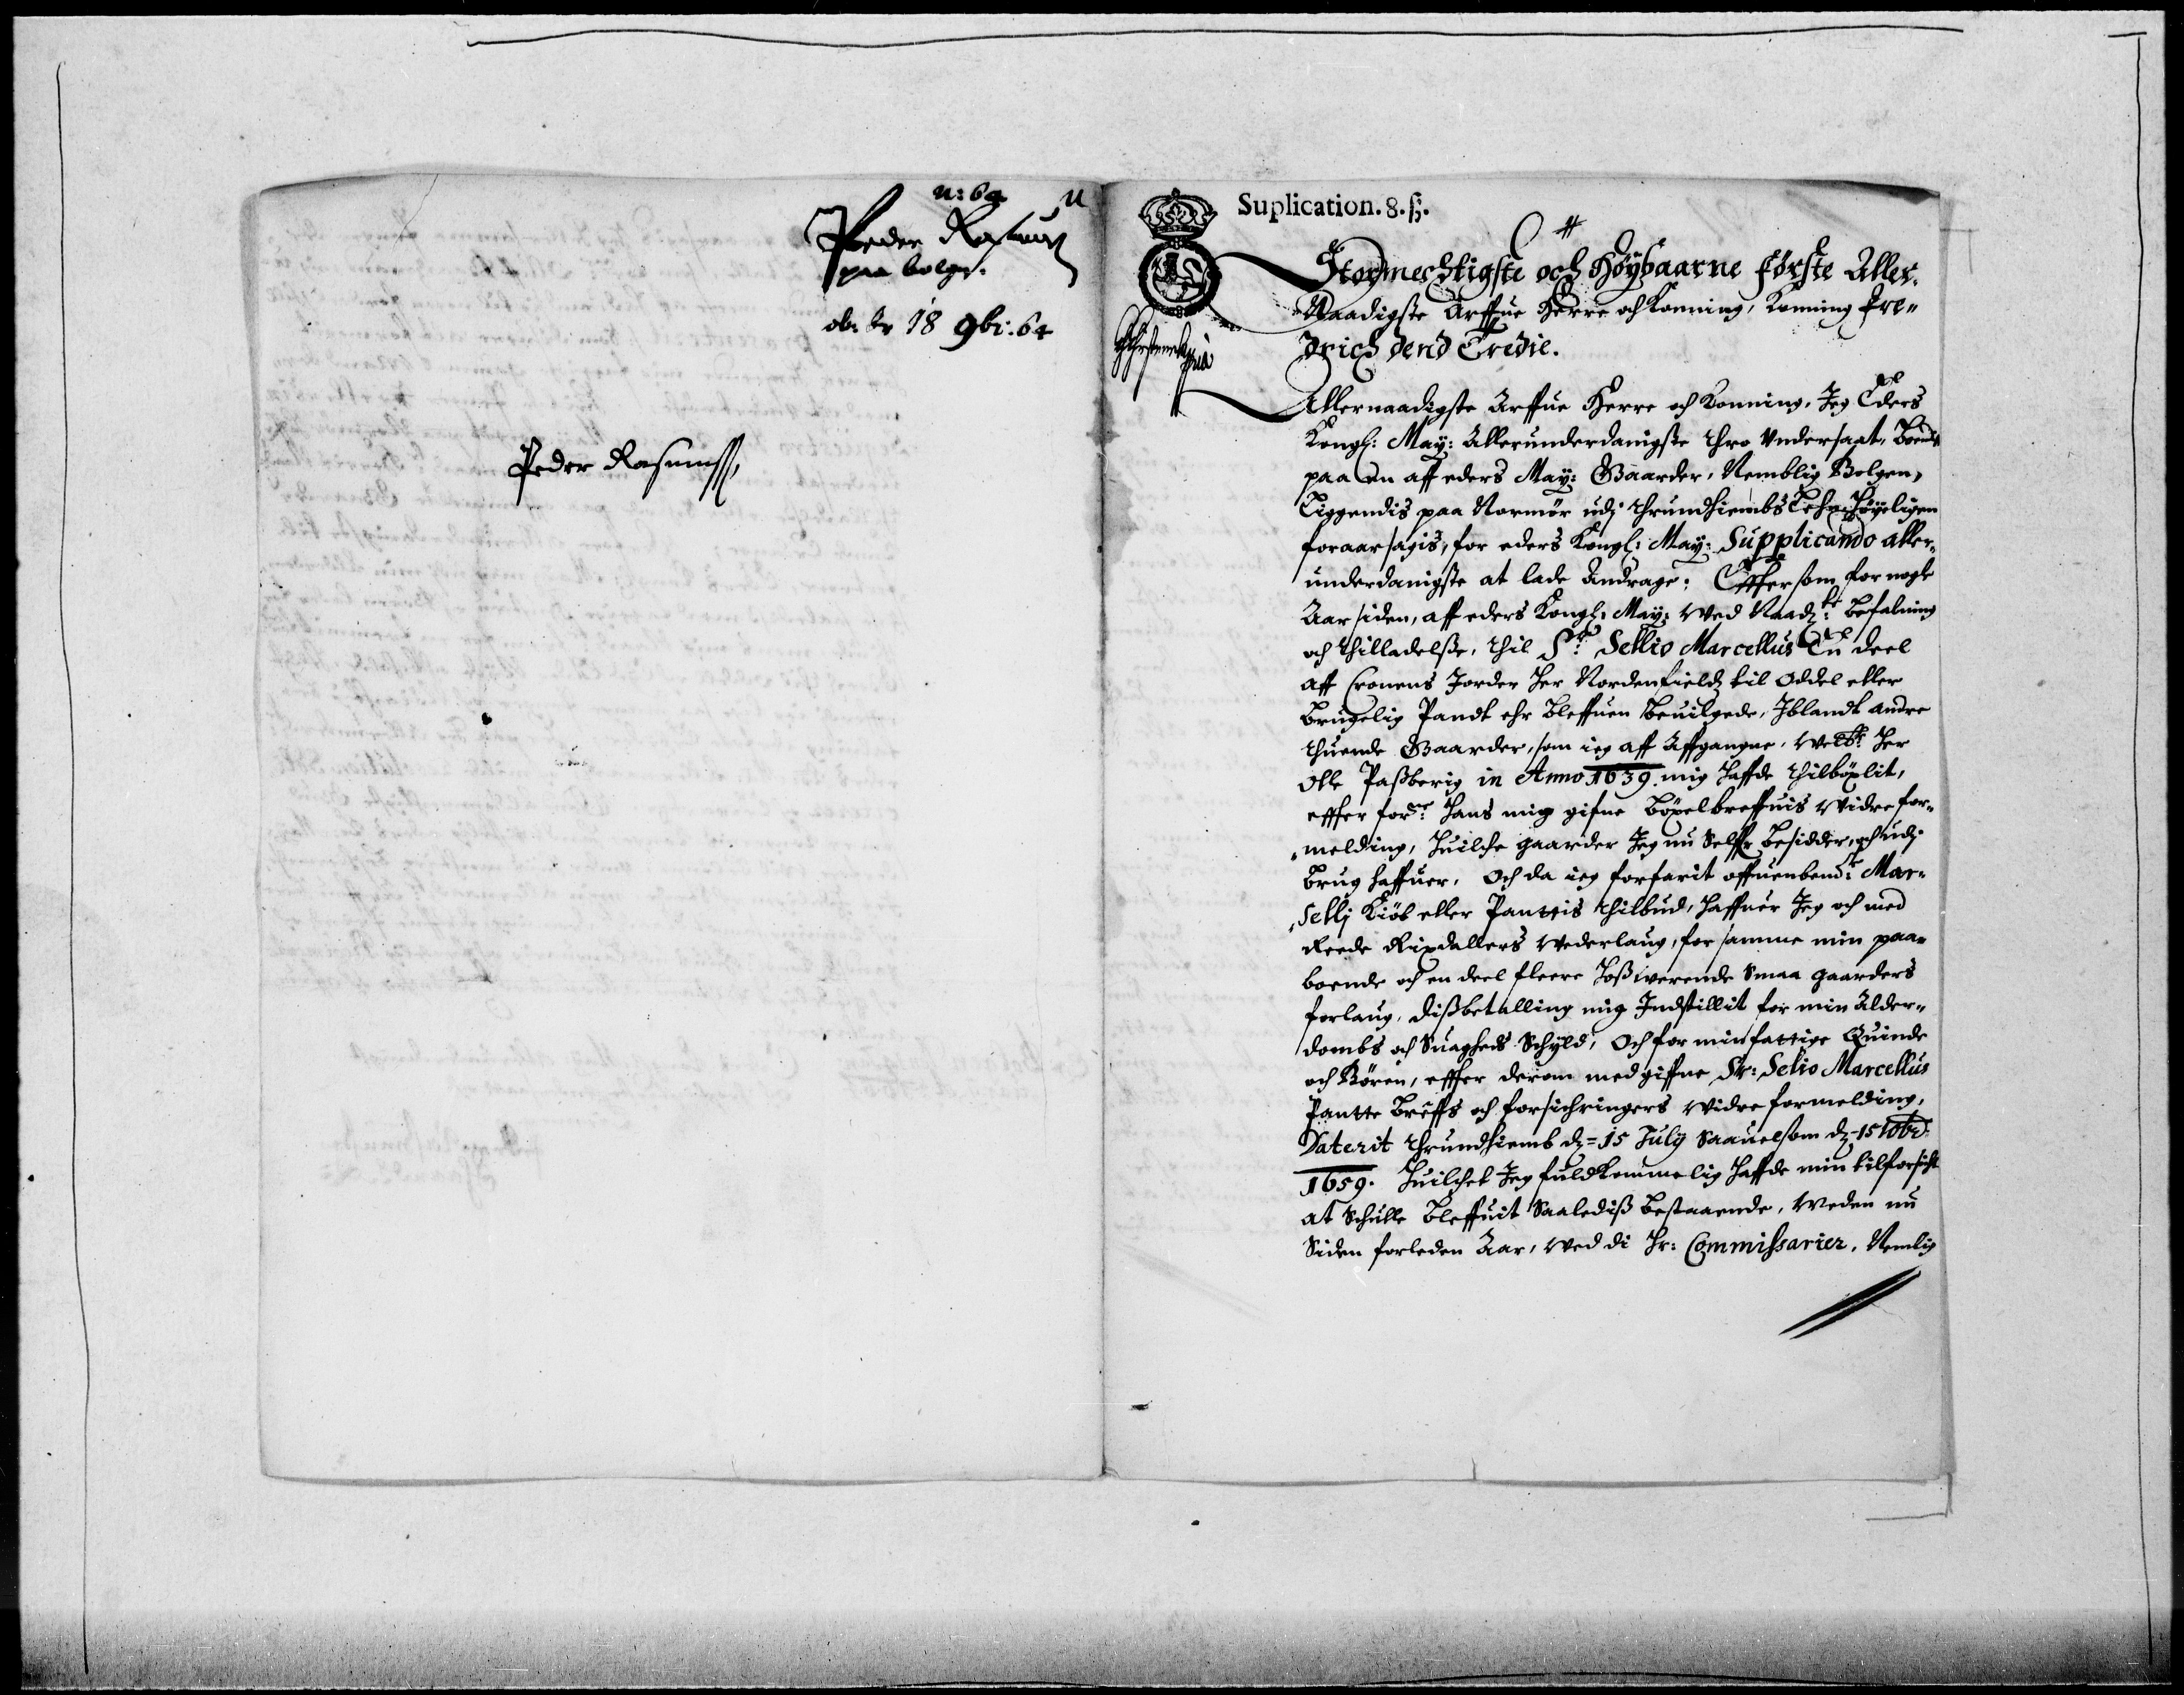 n: 64
Peder Rasmus
paa bolge.
d. 18 9br: 64
Peder Rasmuss
Suplication. 8. ß.
Stormechtigste och Høÿbaarne Første Aller„
Naadigste Arffue Herre och Konning, Konning Fre„
drich dend Tredie.
Allernaadigste Arffue Herre och Konning, Jeg Eders
Kongl: Maÿ: Allerunderdanigste thro Undersaat, Boendis
paa en aff eders Maÿ: Gaarder, Nemblig Bolgen,
Liggendis paa Normør udj Thrundhiembs Lehn, Høÿeligen
foraarsagis, for eders Kongl: Maÿ: Supplicando aller„
underdanigste at lade Andrage: Effter som for nogle
Aar siden, aff eders Kongl: Maÿ: Ved Naadz: befalning
och thilladelsse, thil Sr: Sellio Marcellus En deel
aff Cronens Jorder her Nordenfieldz til Oddel eller
brugelig Pandt ehr bleffuen beuilgede, Jblandt andre
thuende Gaarder, som ieg aff Affgangne, Welb: Her
Olle Passberig in Anno 1639. mig haffde thilböxlit,
effter forne: hans mig gifne böxelbreffuis widre for„
„melding, huilche gaarder Jeg nu Selff besidder, och udj
brug haffuer. Och da ieg forfarit offuenbende: Mar„
„sellj Kiöb eller Panttis thilbud, haffuer Jeg och med
Reede Rixdallers wederlaug, for samme min paa„
boende och en deel fleere hosswerende Smaa gaarders
forlaug, dissbetalling mig Indstillit for min alder„
dombs och Suagheds Schÿld, Och for min fattige Quinde
och Börn, effter derom med giffne Sr: Selio Marcellus
Pantte breffs och forsichringers widre formelding,
Daterit Thrundhiemb dz= 15 Julÿ Saauelsom dz= 15 10bris
1659. Huilchet Jeg fuldkommelig haffde min tilforsicht
at Schulle bleffuit Saalediss bestaaende, Meden nu
Siden forleden Aar, wed di Hr: Commissarier, Nemlig